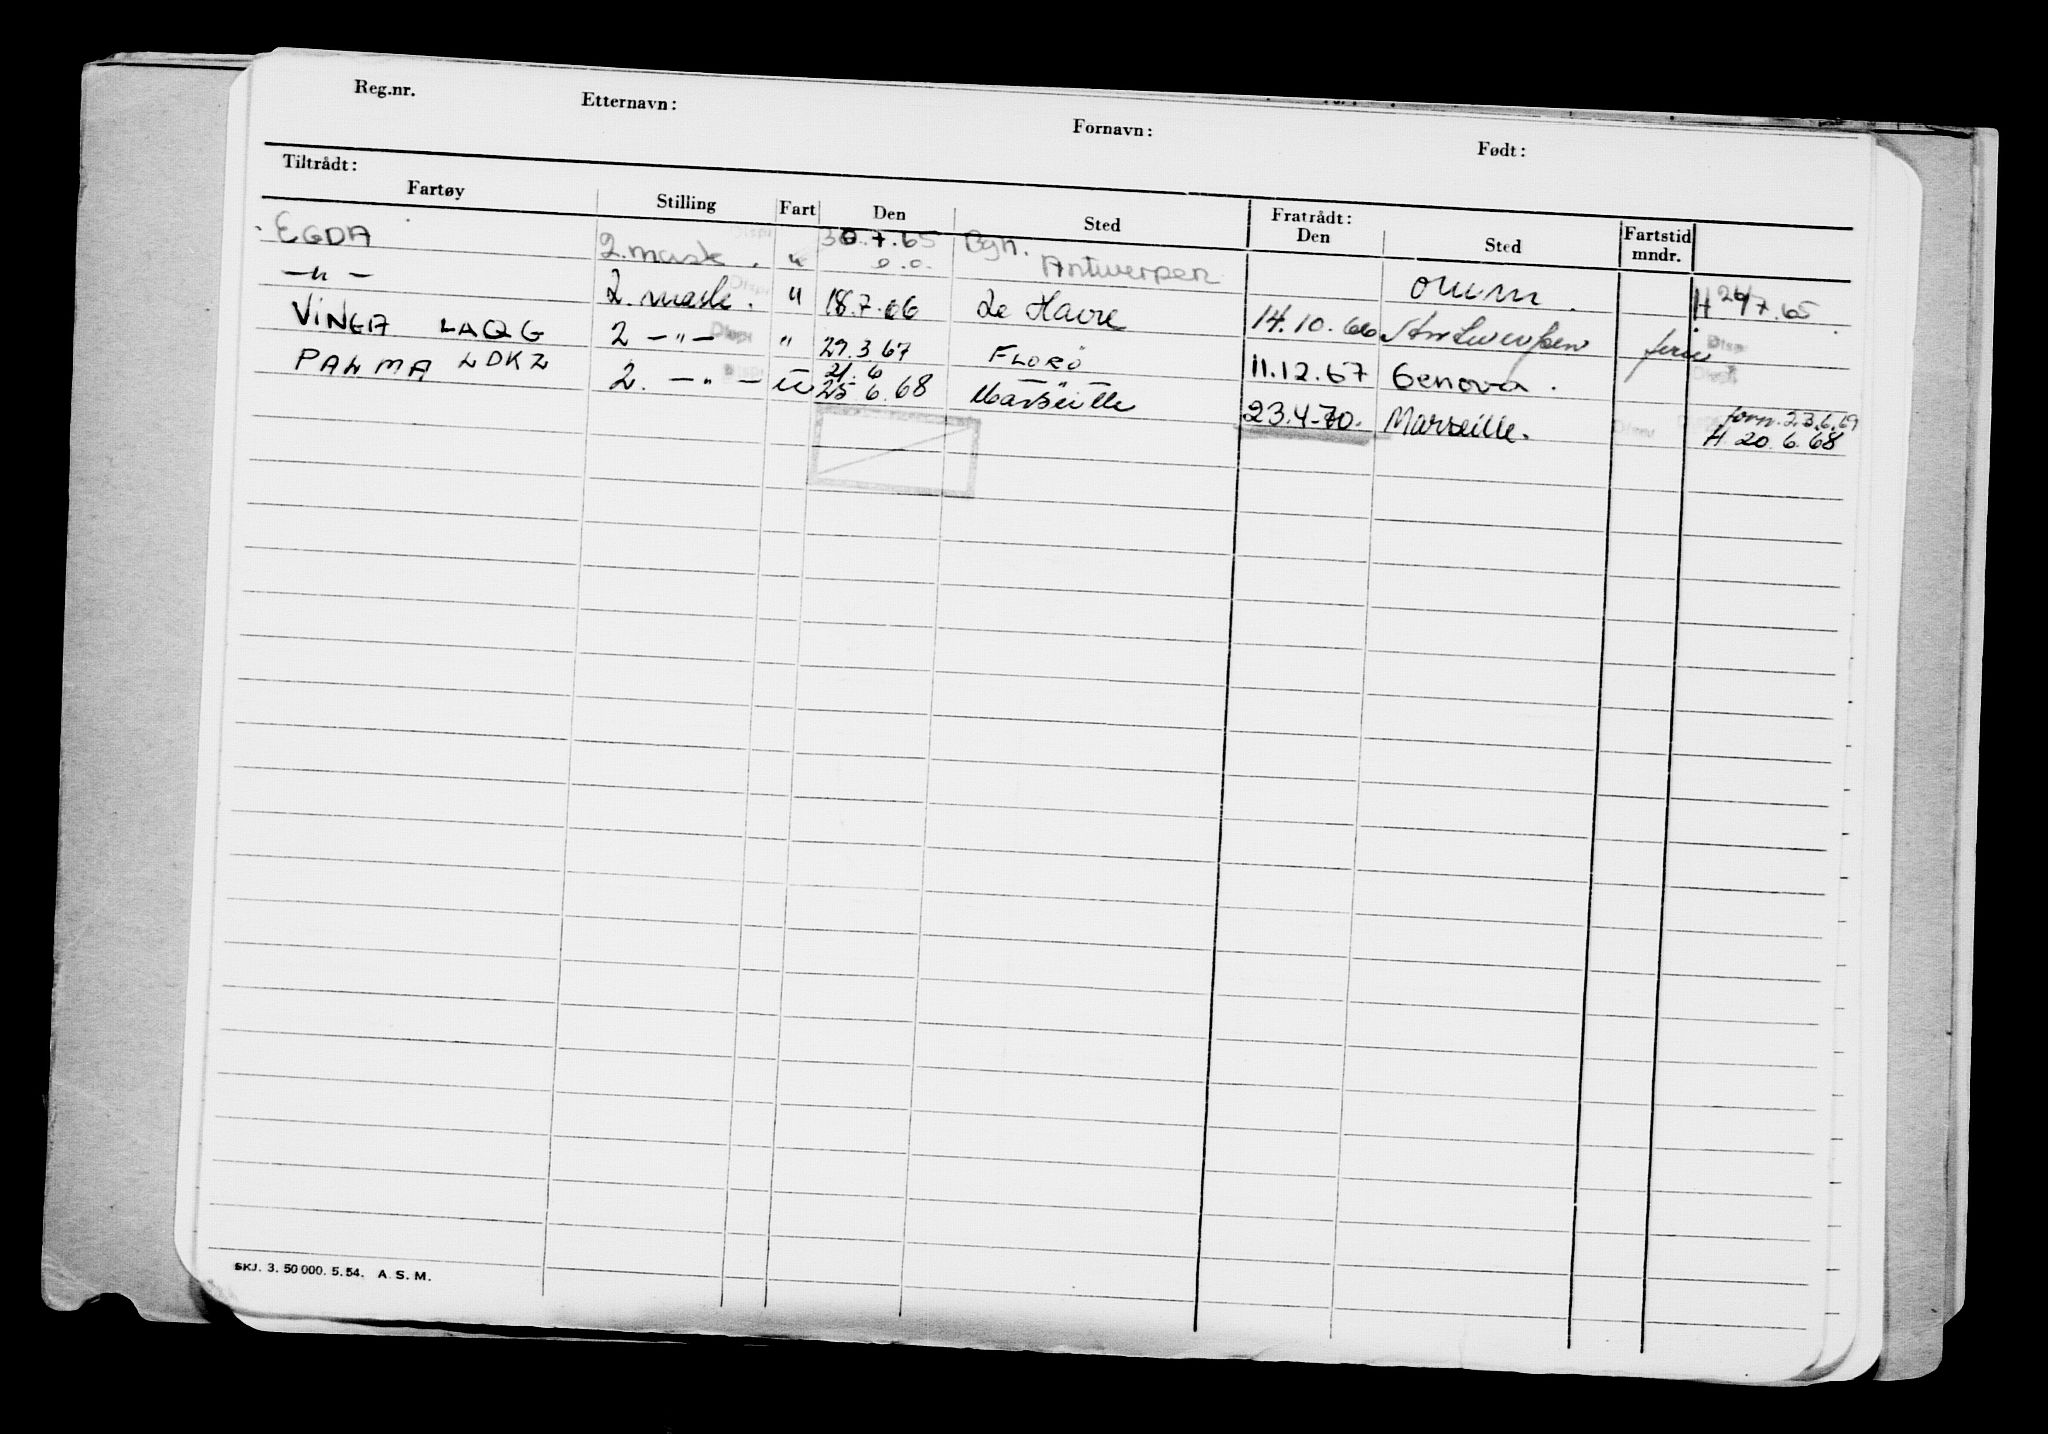 Reg.nr. Etternavn: Fornavn: Født:
Tiltrådt: Fratrådt:
Fartøy Stilling Fart Den Sted Den Sted Fartstid mndr.
EGDA 2. mask. " 30.7.65 Bgn.
o.o. Antwerpen omm. H 24/7.65
—"— 2. mask. " 18.7.66 Le Havre 14.10.66 Antwerpen ferie Disp
VINGA LAQG 2 —"— " 29.3.67 FLORØ 11.12.67 Genova.
21.6
PALMA LDKZ 2. —"— u 25.6.68 Marseille 23.4-70. Marseille. forn. 23.6.69
H. 20.6.68
SKJ. 3. 50 000. 5. 54. A. S. M.